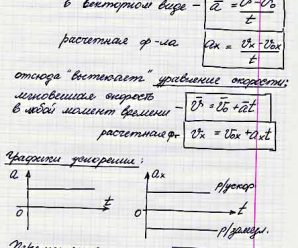 в векторном виде – a⃗ = (v⃗ - v⃗₀)/t
расчетная ф-ла aₓ = (vₓ - v₀ₓ)/t
отсюда "вытекает" уравнение скорости:
мгновенная скорость
в любой момент времени – v⃗ = v⃗₀ + a⃗t
расчетная ф. vₓ = v₀ₓ + aₓt
Графики ускорения:
a aₓ
р/ускор
0 t 0 t
р/замедл.